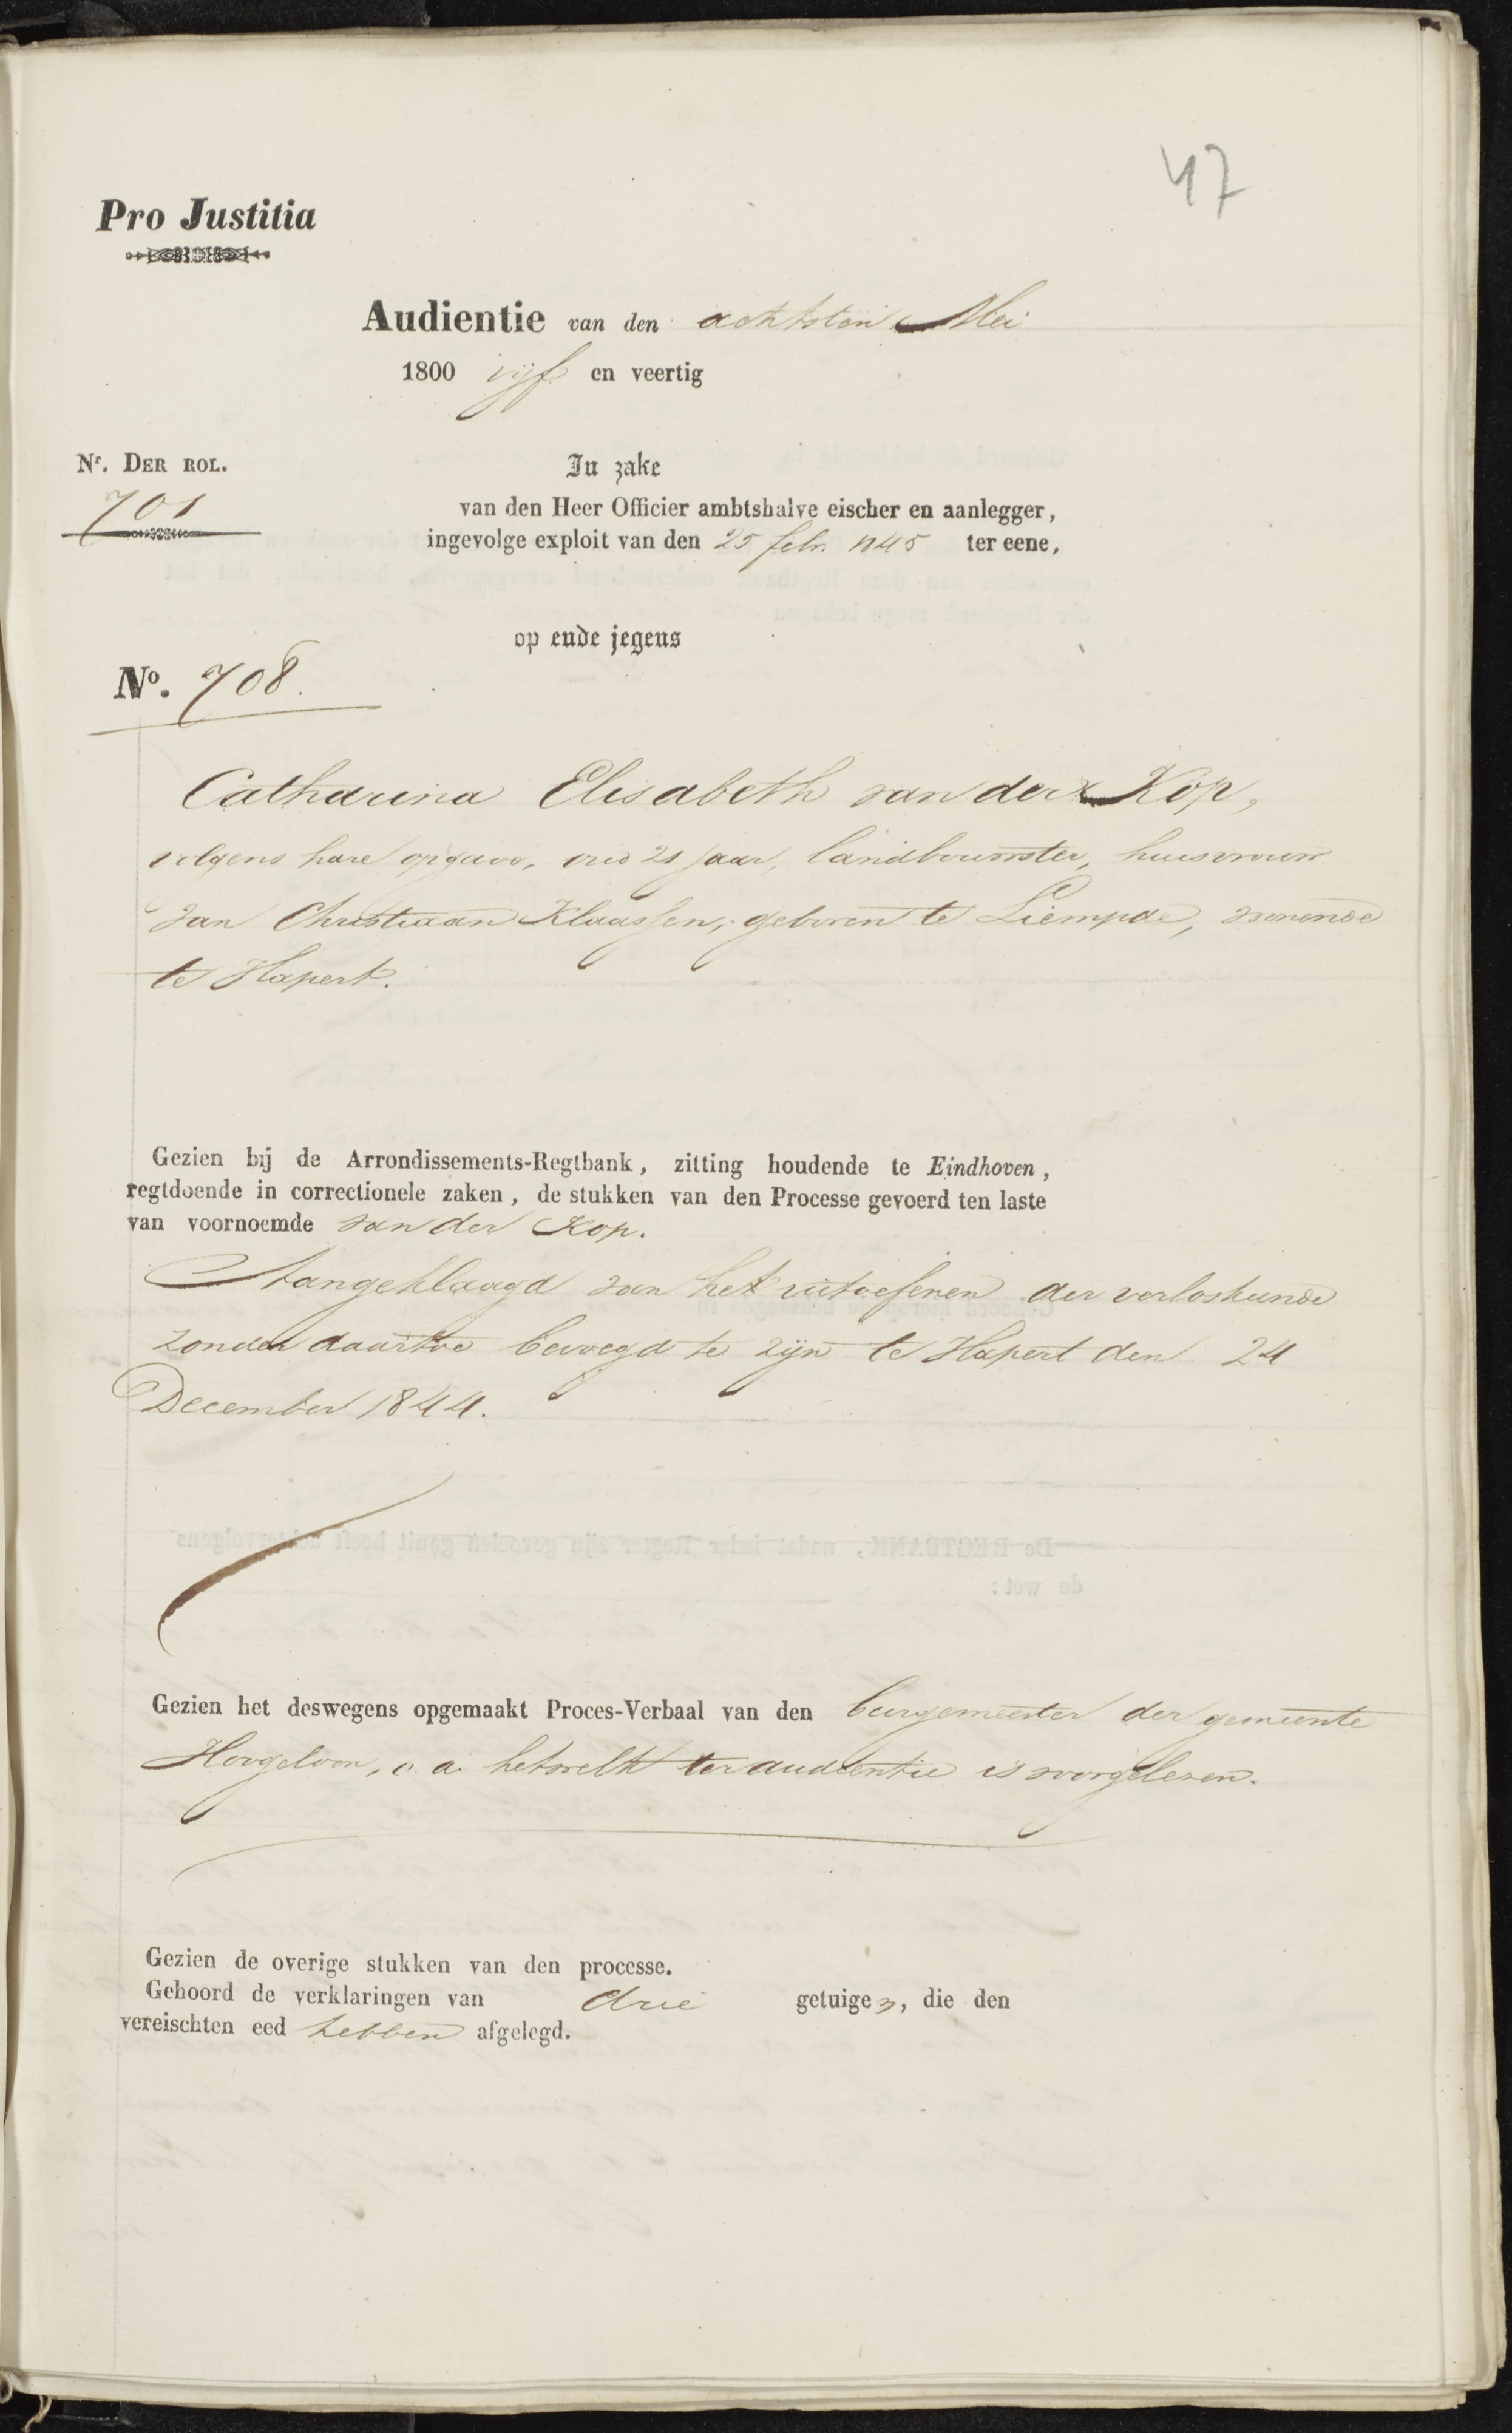 47
Pro Justitia
Audientie van den achtsten Mei
1800 vijf en veertig
Nr. DER ROL.
701
In zake
van den Heer Officier ambtshalve eischer en aanlegger,
ingevolge exploit van den 25 febr. 1845 ter eene,
op ende jegens
No. 708.
Catharina Elisabeth van der Kop,
volgens hare opgave, oud 21 jaar, landbouwster, huisvrouw
van Christiaan Klaassen, geboren te Liempde, wonende
te Hapert.
Gezien bij de Arrondissements-Regtbank, zitting houdende te Eindhoven,
regtdoende in correctionele zaken, de stukken van den Processe gevoerd ten laste
van voornoemde van der Kop.
Aangeklaagd van het uitoefenen der verloskunde
zonder daartoe bevoegd te zijn te Hapert den 24
December 1844.
Gezien het deswegens opgemaakt Proces-Verbaal van den burgemeester der gemeente
Hoogeloon, c.a. hetwelk ter audientie is voorgelezen.
Gezien de overige stukken van den processe.
Gehoord de verklaringen van drie getuigen, die den
vereischten eed hebben afgelegd.